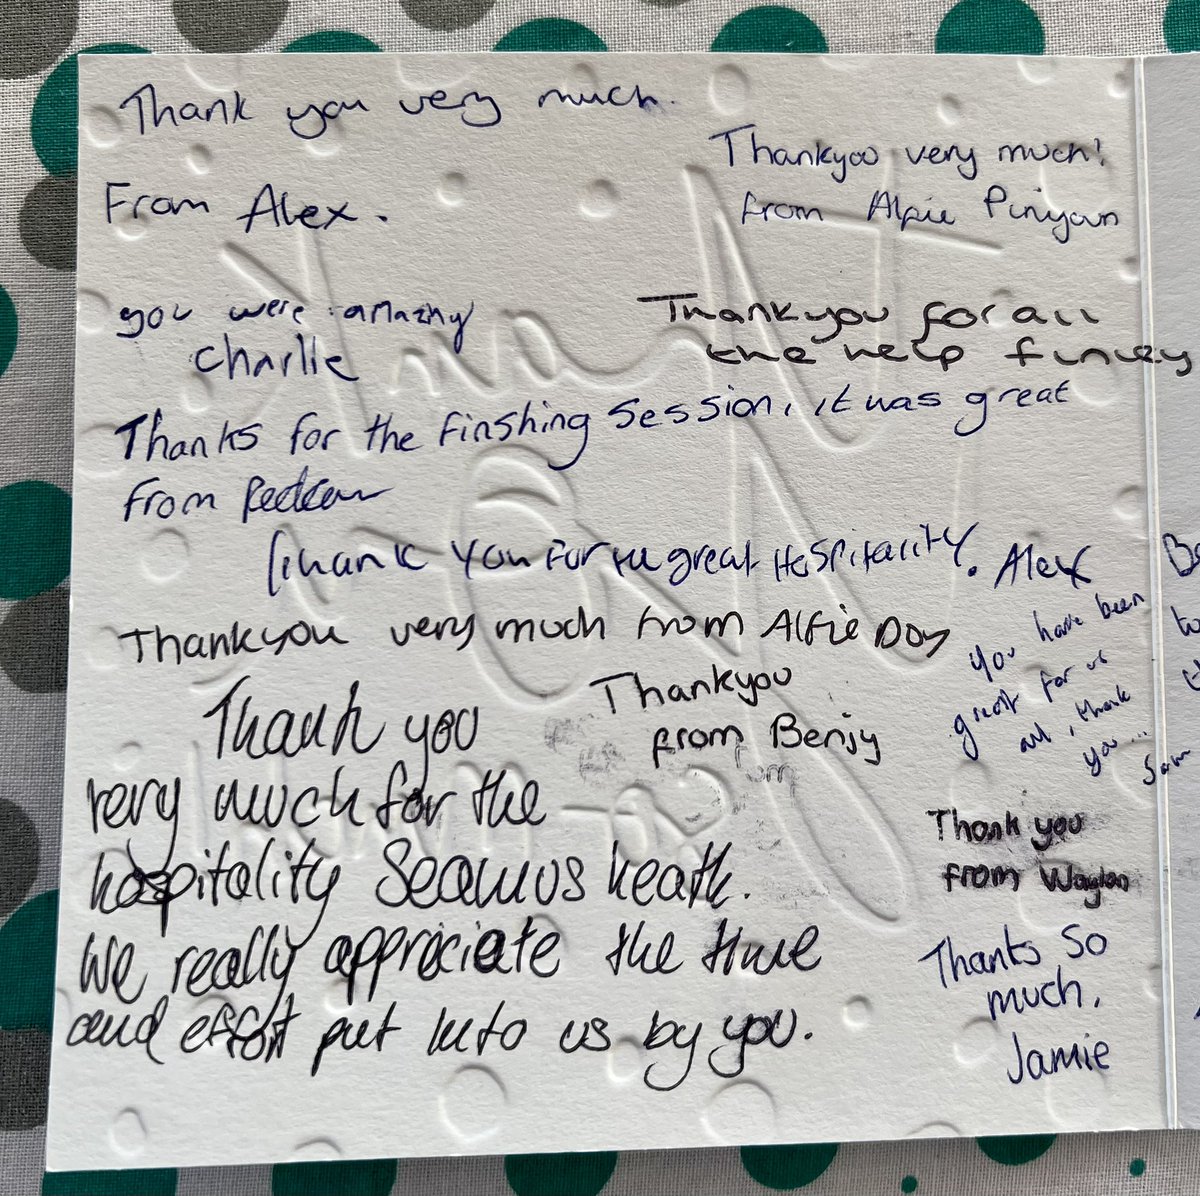 Thank you very much.
From Alex.
Thankyou very much!
from Alfie Pinyoun
you were amazing
Charlie
Thankyou for all
the help finley
Thanks for the Finshing Session, it was great
from
Thank you for the great Hospitality. Alex
Thankyou very much from Alfie Day
you have been
great for us
all, thank
you...
Sam
Thankyou
from Benjy
Thank you
very much for the
hospitality Seamus heath.
We really appriciate the time
and effort put into us by you.
Thank you
from Waylon
Thanks so
much,
Jamie